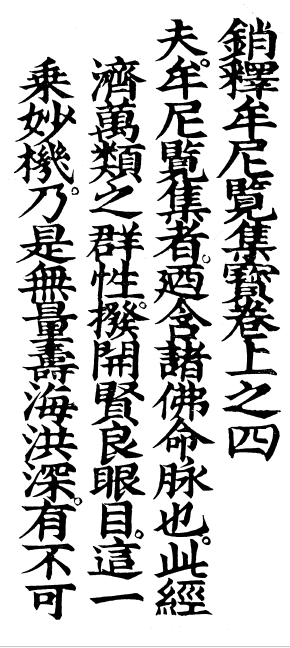 銷釋牟尼覽集寶卷上之四
夫牟尼覽集者。廼含諸佛命脉也。此經
濟萬類之群性。撥開賢良眼目。這一
乗妙機。乃是無量壽海洪深。有不可